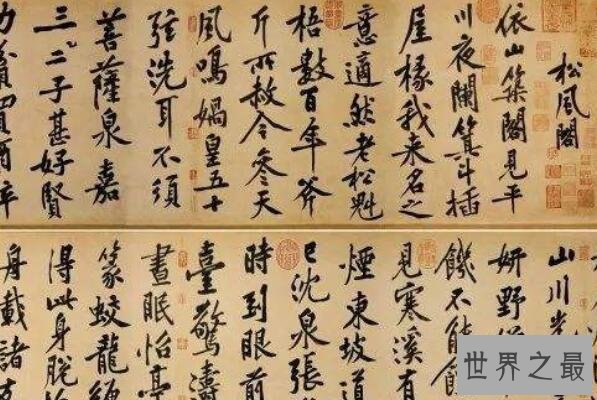 松風閣
依山築閣見平
川夜闌箕斗插
屋椽我來名之
意適然老松魁
梧數百年斧
斤所赦今參天
風鳴媧皇五十
弦洗耳不須
菩薩泉嘉
三二子甚好賢
力貧買酒
山川光
妍野僧
饑不能饘
見寒溪有
煙東坡道
已沈泉張
時到眼前
臺驚濤
晝眠怡亭
篆蛟龍纏
得此身脫
舟載諸友
世界之最